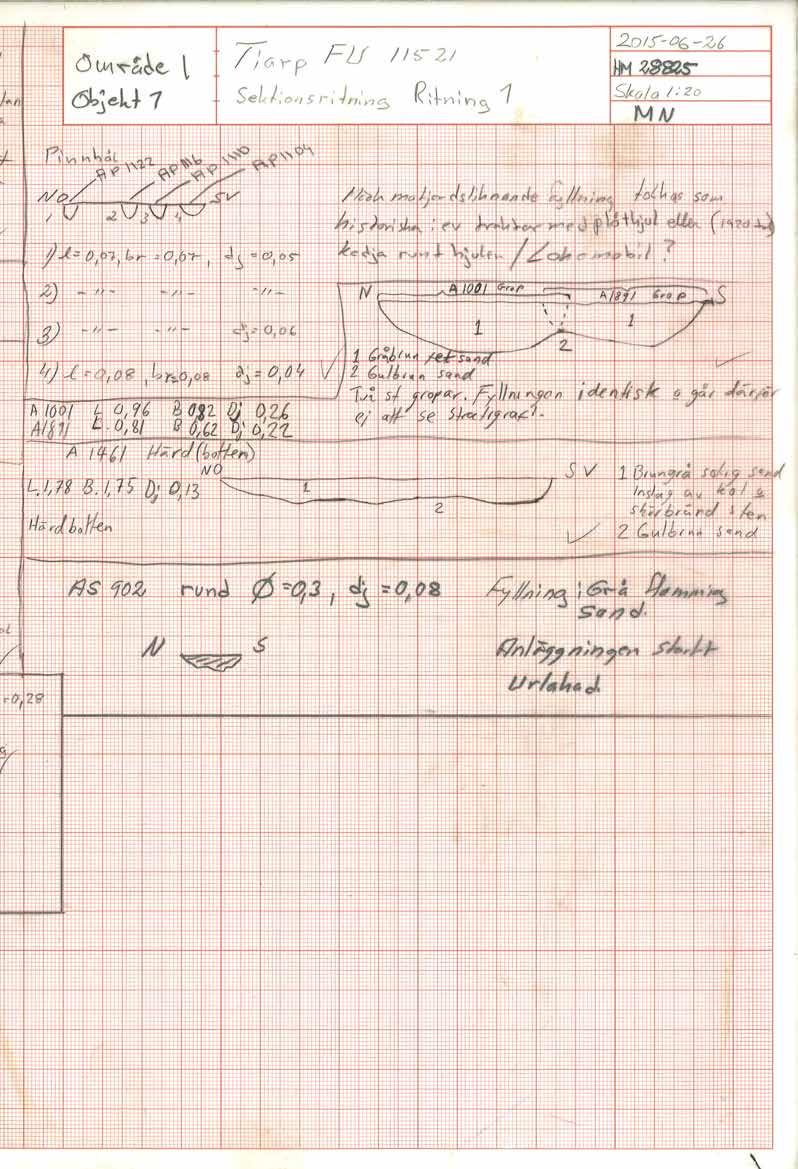 Område 1
Objekt 1
Tiarp FU 11521
Sektionsritning Ritning 1
2015-06-26
HM 28825
Skala 1:20
MN
Pinnhål
AP1122
AP1116
AP1110
AP1104
NO
SV
1
2
3
4
1) l=0,07, br=0,07, dj=0,05
2) -"- -"- -"-
3) -"- -"- dj=0,06
4) l=0,08, br=0,08 dj=0,04
matjordsliknande fyllning tolkas som
historiska i ev traktor med plåthjul eller (1920 tal)
kedja runt hjulen / Lokomobil?
N
A1001 Grop
A1891 Grop
S
1
1
2
1 Gråbrun sand
2 Gulbrun sand
Två st gropar. Fyllningen identisk o går därför
ej att se stratigrafi.
A1001 L 0,96 B 0,82 Dj 0,26
A1891 L. 0,81 B 0,62 Dj 0,22
A 1461 Härd (botten)
NO
SV
L.1,78 B.1,75 Dj 0,13
1
2
Härdbotten
1 Brungrå sotig sand
Inslag av kol o
skörbränd sten
2 Gulbrun sand
AS 902 rund Ø=0,3, dj=0,08
Fyllning: Grå flammig
sand.
N
S
Anläggningen starkt
Urlakad.
=0,28